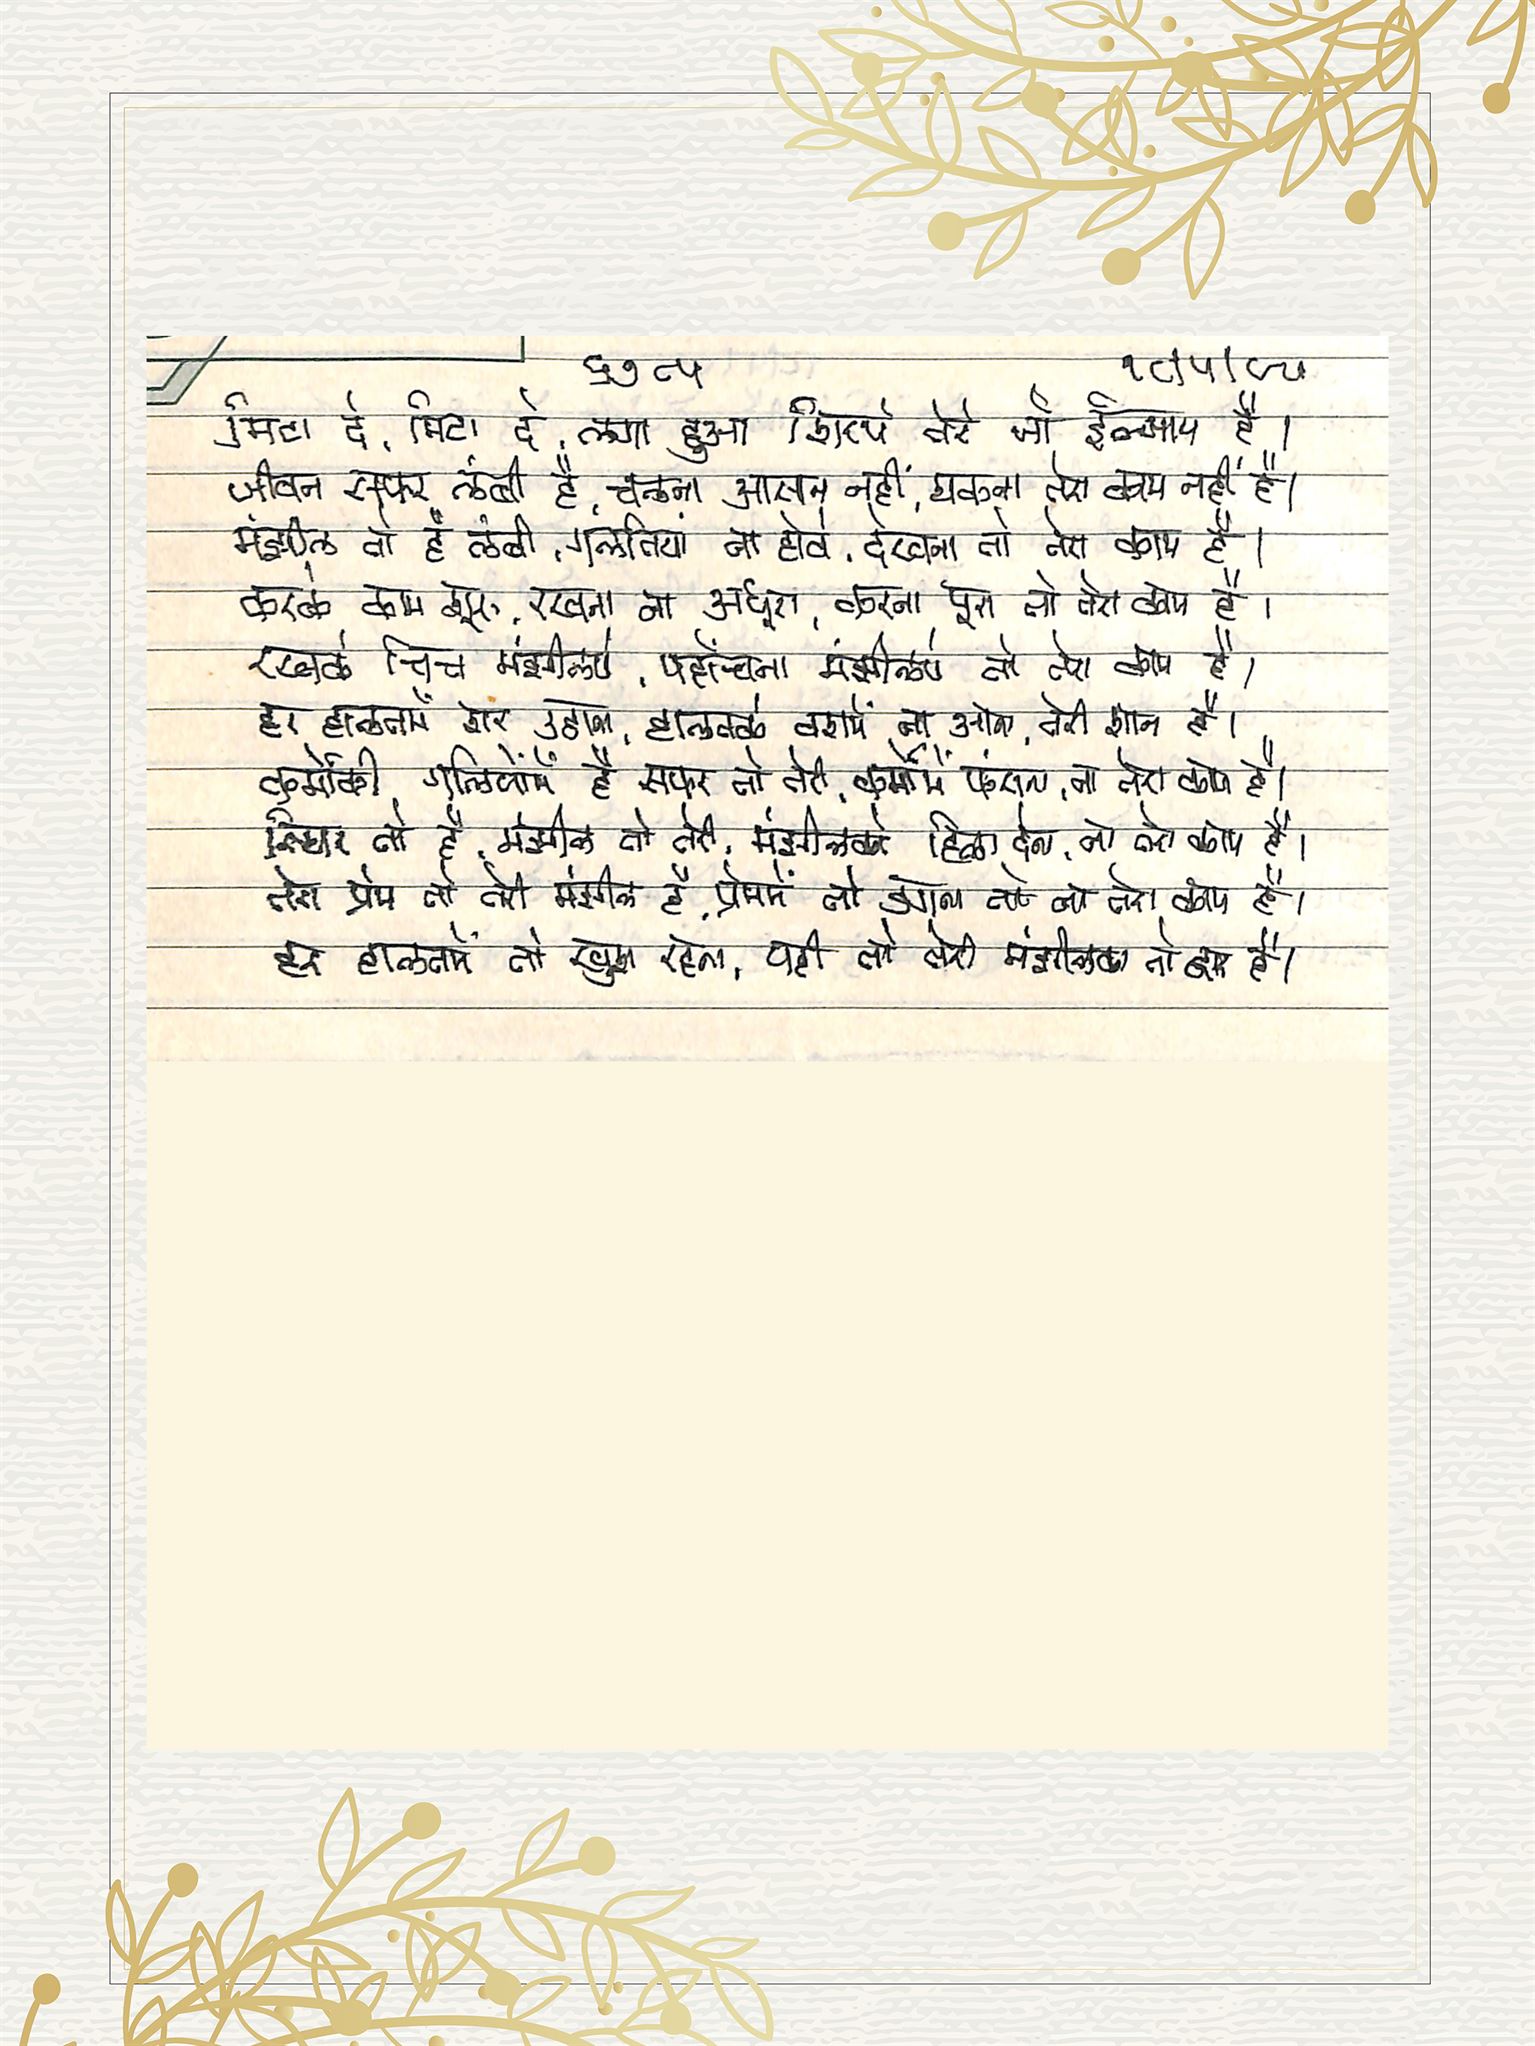 ६७८५ १८|५|८८
मिटा दे, मिटा दे, लगा हुआ शिरपे तेरे जो ईल्जाम है।
जीवन सफर लंबी है, चलना आसान नहीं, थकना तेरा काम नहीं है।
मंझील तो है लंबी, गलतियां ना होवे, देखना तो तेरा काम है।
करके काम शूरू, रखना ना अधूरा, करना पूरा तो तेरा काम है।
रखके चित्त मंझीलपे, पहोंचना मंझीलपे तो तेरा काम है।
हर हालतमें शेर उठाना, हालतके वशमें ना आना, तेरी शान है।
कर्मोंकी गलियोंमें है सफर तो तेरी, कर्मोंमें फंसना, ना तेरा काम है।
स्थिर तो है, मंझील तो तेरी, मंझीलको हिला देना, ना तेरा काम है।
तेरा प्रेम तो तेरी मंझील है, प्रेममें तो तो ना तेरा काम है।
हर हालतमें तो खुश रहेना, यही तो तेरी मंझीलका तो है।